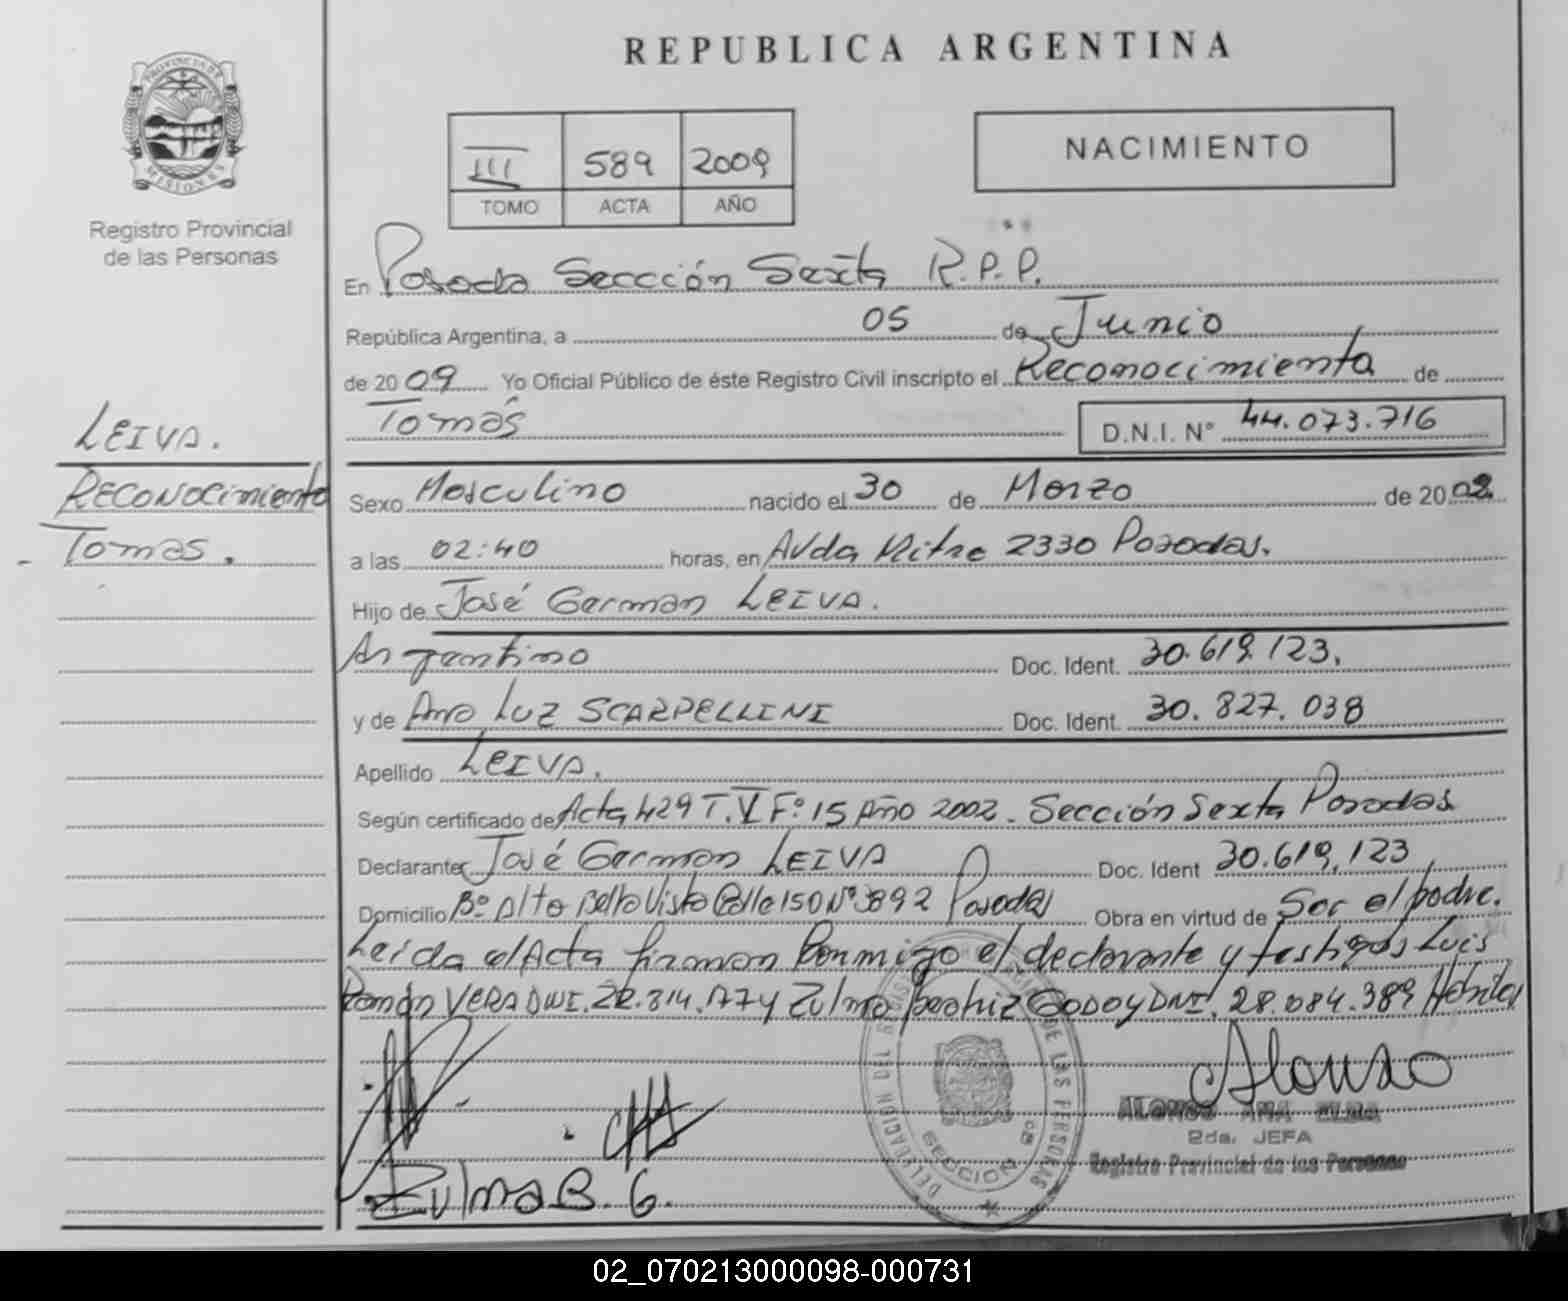 REPUBLICA ARGENTINA
PROVINCIA DE
MISIONES
Registro Provincial
de las Personas
III 589 2009
TOMO ACTA AÑO
NACIMIENTO
En Posadas Sección Sexta R.P.P.
República Argentina, a 05 de Junio
de 2009 Yo Oficial Público de éste Registro Civil inscripto el Reconocimiento de
Tomás D.N.I. N° 44.073.716
LEIVA.
RECONOCimiento
Tomas.
Sexo Masculino nacido el 30 de Marzo de 2002
a las 02:40 horas, en Avda Mitre 2330 Posadas.
Hijo de José German LEIVA.
Argentino Doc. Ident. 30.619.123.
y de Ana LUZ SCARPELLINI Doc. Ident. 30.827.038
Apellido LEIVA.
Según certificado de Acta 429 T. V F° 15 Año 2002. Sección Sexta Posadas
Declarante José German LEIVA Doc. Ident 30.619.123
Domicilio B° Alto Bella Vista Calle 150 N° 3892 Posadas Obra en virtud de Ser el padre.
Leída el Acta firman Conmigo el declarante y testigos Luis
Ramón VERA DNI. 22.814. Zulma Beatriz GODOY DNI. 28.084.389 Hábiles
Alonso
ALONSO ANA ELBA
2da. JEFA
Registro Provincial de las Personas
DELEGACION DEL REGISTRO DE LAS PERSONAS
SECCION 6a
Zulma B. G.
02_070213000098-000731